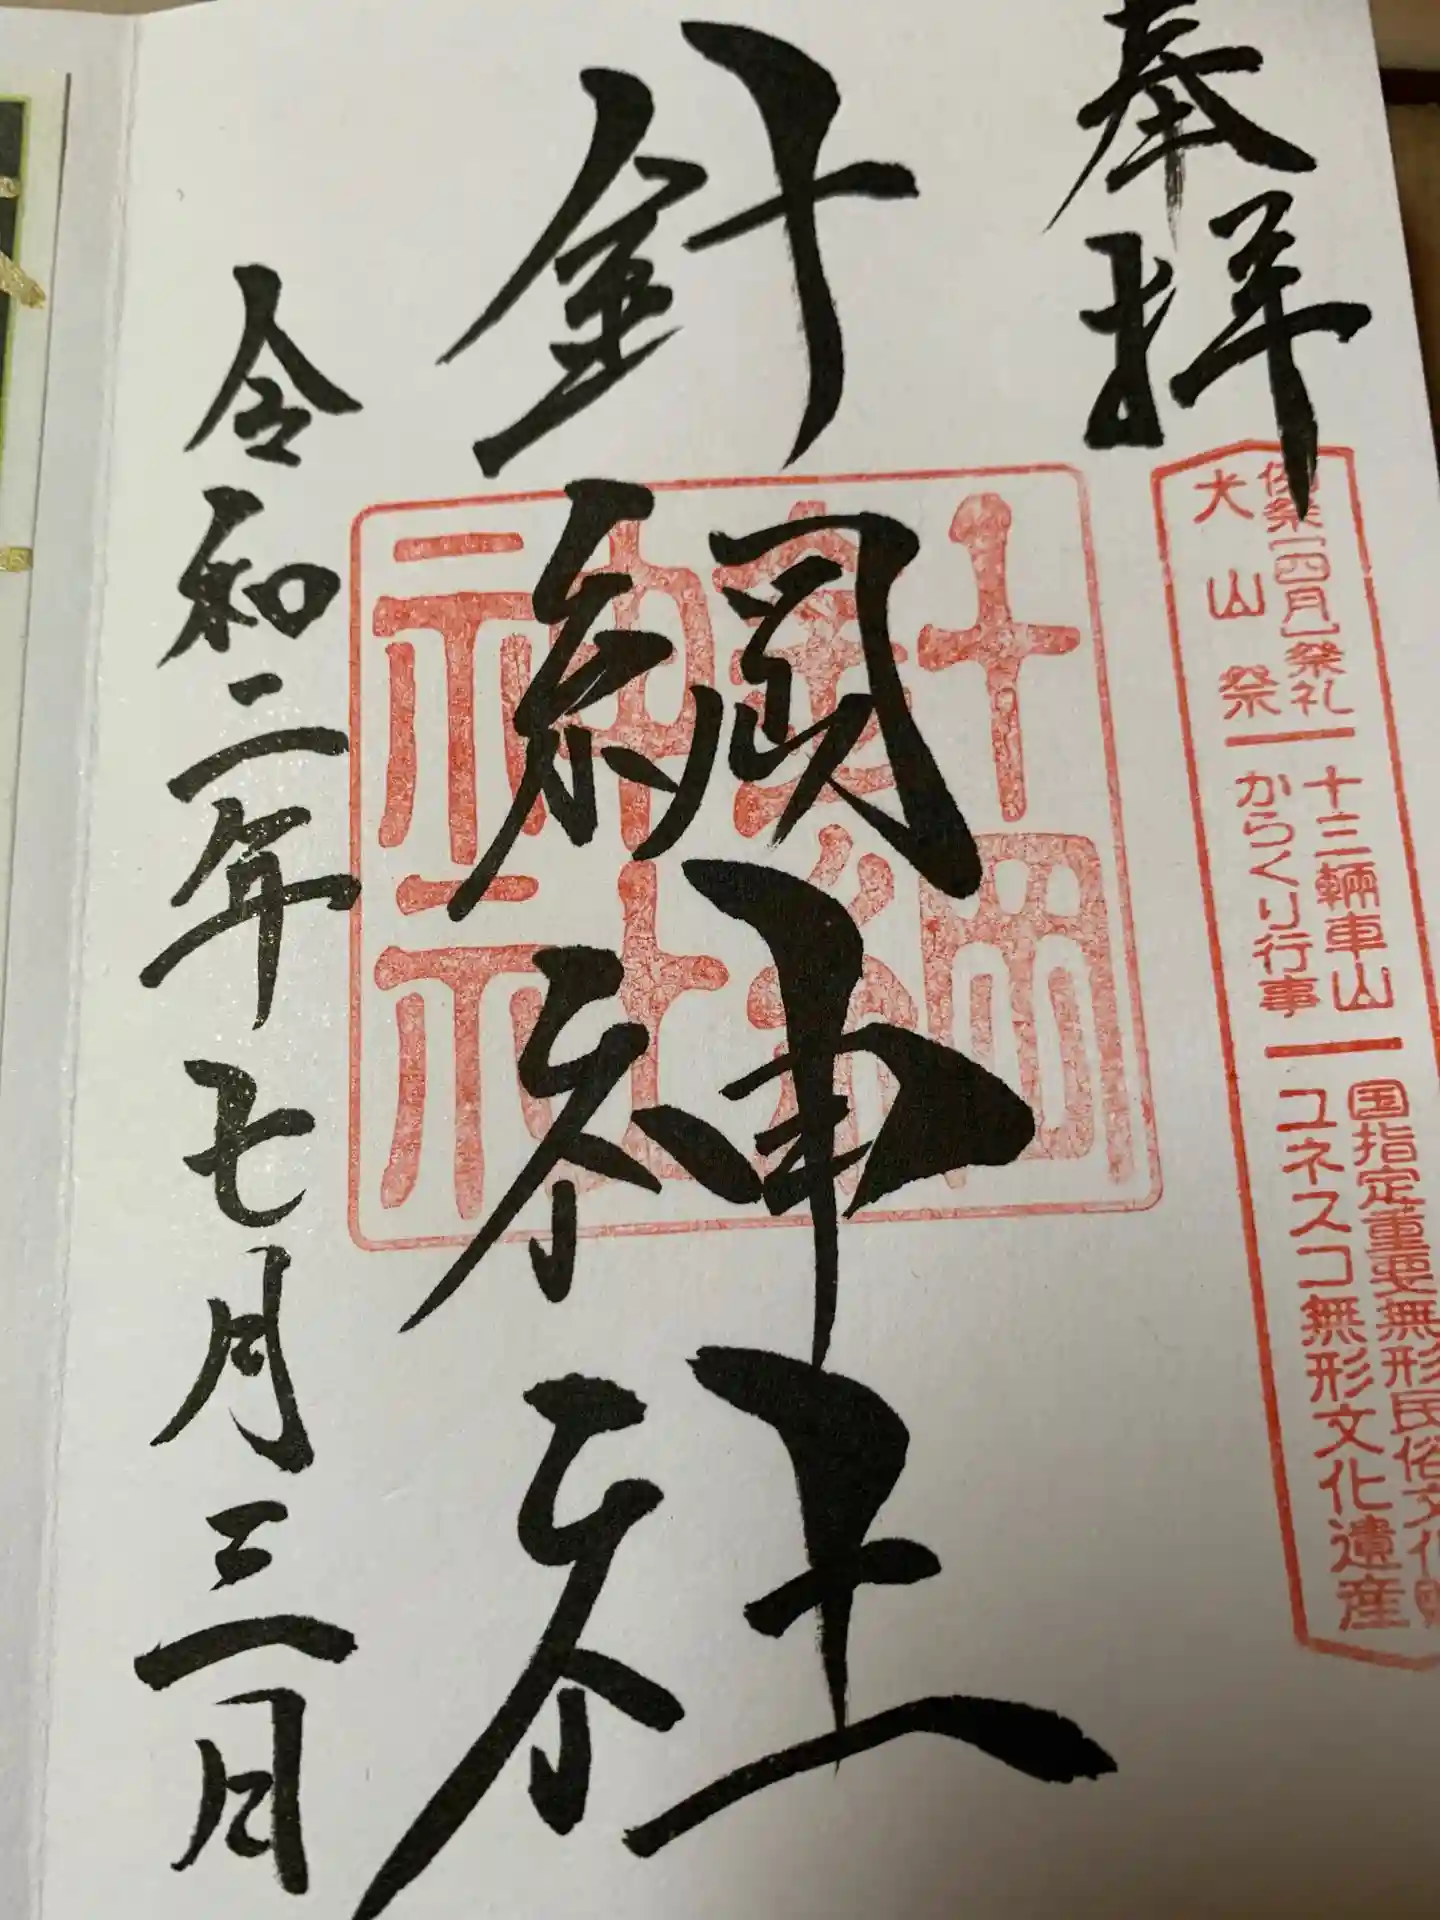 奉拝
例祭[四月]祭礼 十三輛車山 国指定重要無形民俗文化財
犬山祭 からくり行事 ユネスコ無形文化遺産
針綱神社
針綱
神社
令和二年七月三日